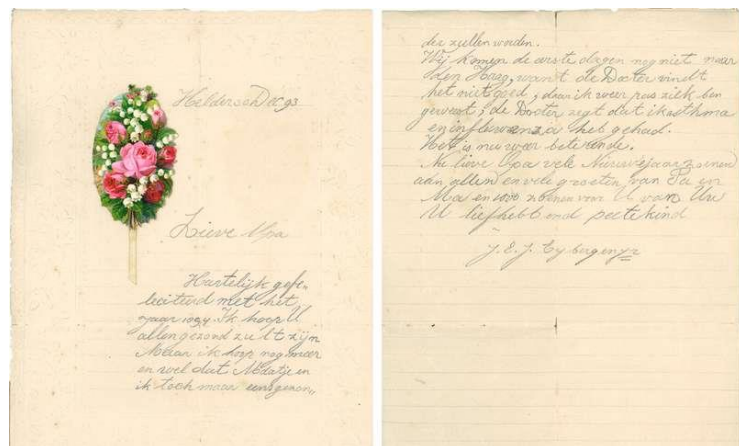 Helder 30 Dec 93
Lieve Opa
Hartelijk gefe-
liciteerd met het
jaar 1894. Ik hoop U
allen gezond zult zijn
Maar ik hoop nog meer
en wel dat Maatje en
ik toch maar eens gezon„
der zullen worden.
Wij komen de eerste dagen nog niet naar
den Haag, want de Docter vindt
het niet goed, daar ik weer pas ziek ben
geweest; de Docter zegt dat ik asthma
en influenza heb gehad.
Het is nu weer beterende.
Nu lieve Opa vele Nieuwejaarzoenen
aan allen en vele groeten van Pa en
Ma en 1000 zoenen voor U van Uw
U liefhebbend peetekind
J. E. J.